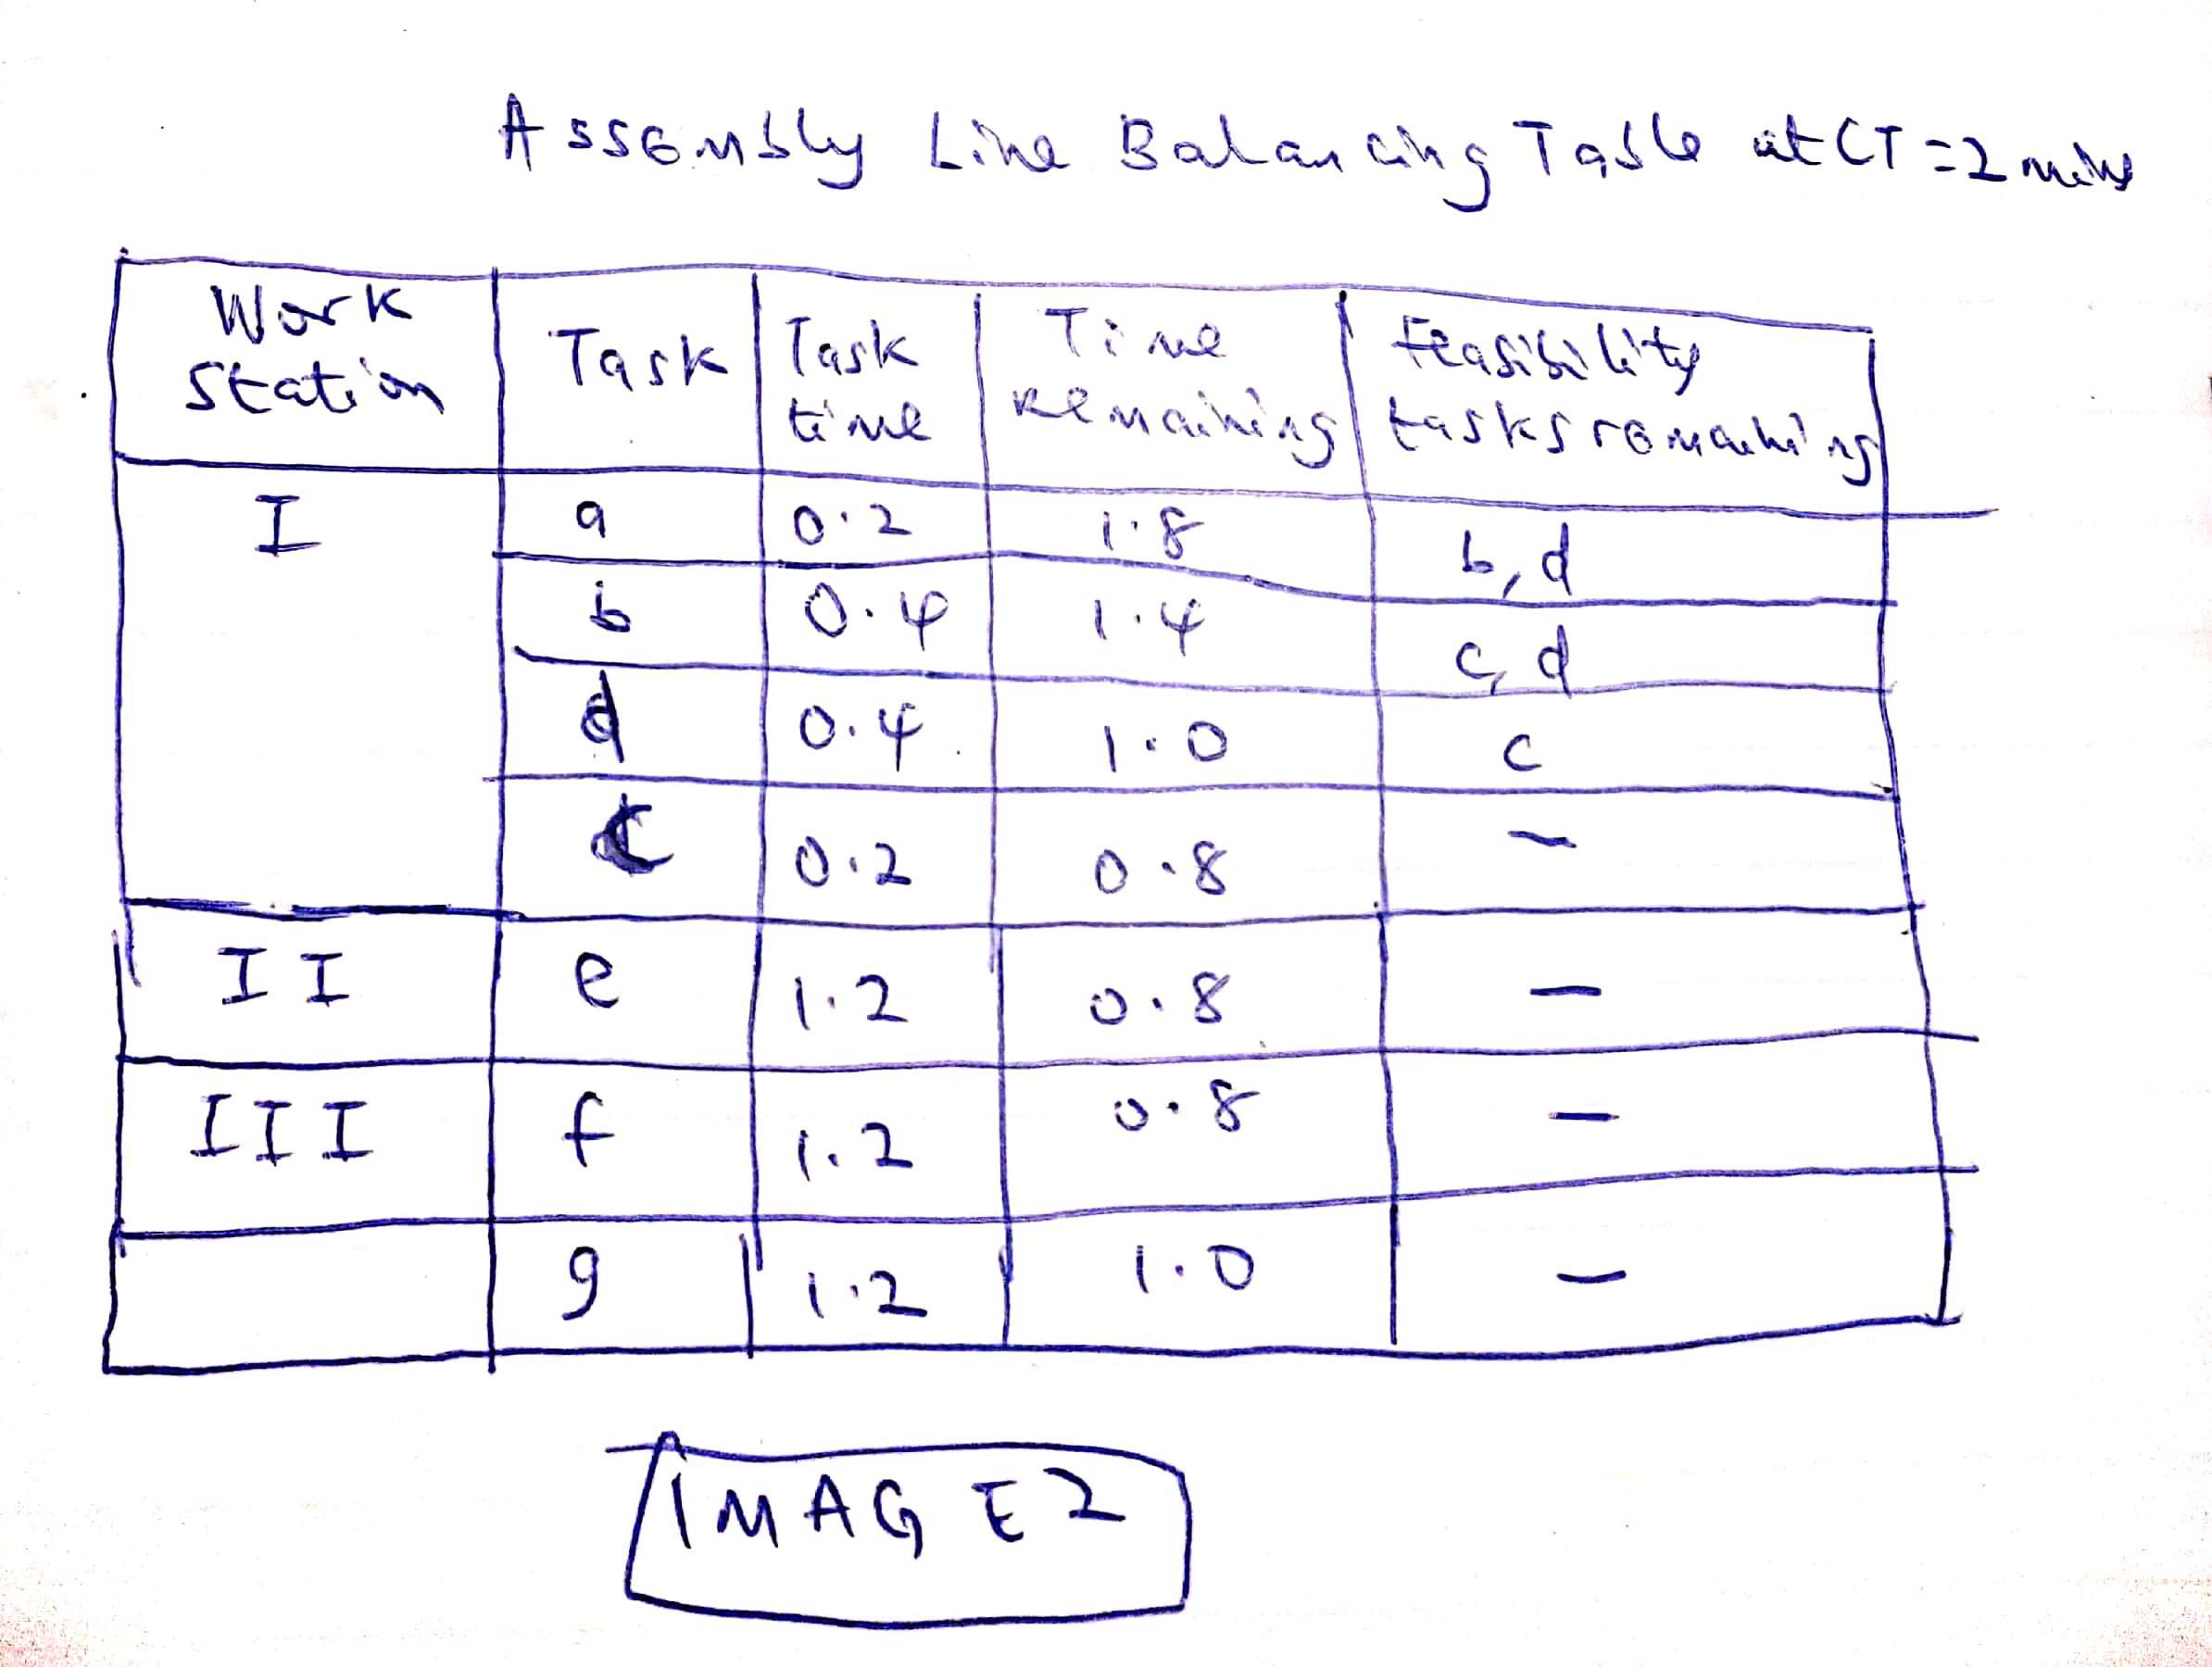 Assembly Line Balancing Table at CT=2 mins
Work Station | Task | Task time | Time Remaining | Feasibility tasks remaining
I | a | 0.2 | 1.8 | b, d
b | 0.4 | 1.4 | c, d
d | 0.4 | 1.0 | c
c | 0.2 | 0.8 | –
II | e | 1.2 | 0.8 | –
III | f | 1.2 | 0.8 | –
g | 1.2 | 1.0 | –
IMAGE 2